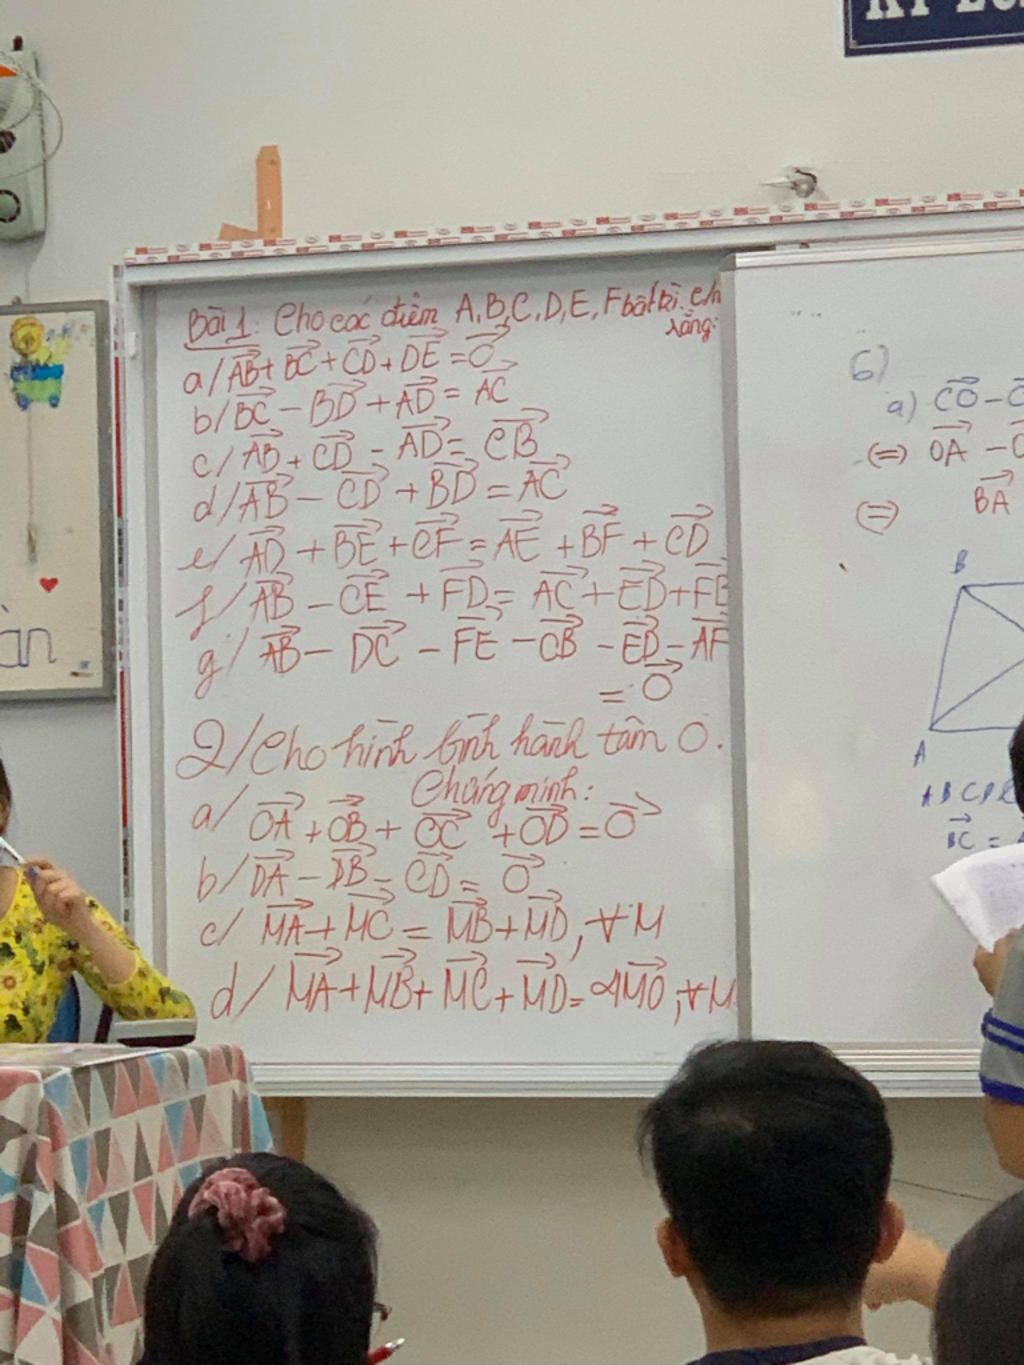 Bài 1: Cho các điểm A,B,C,D,E,F bất kì. c/m
rằng:
a/ AB + BC + CD + DE = O
b/ BC - BD + AD = AC
c/ AB + CD - AD = CB
d/ AB - CD + BD = AC
e/ AD + BE + CF = AE + BF + CD
f/ AB - CE + FD = AC + ED +
g/ AB - DC - FE - CB - ED - AF
= O
2/ Cho hình bình hành tâm O.
Chứng minh:
a/ OA + OB + OC + OD = O
b/ DA - DB - CD = O
c/ MA + MC = MB + MD, ∀M
d/ MA + MB + MC + MD = 4MO, ∀M
6)
a) CO -
(=) OA -
(=) BA
B
A
BC =
àn